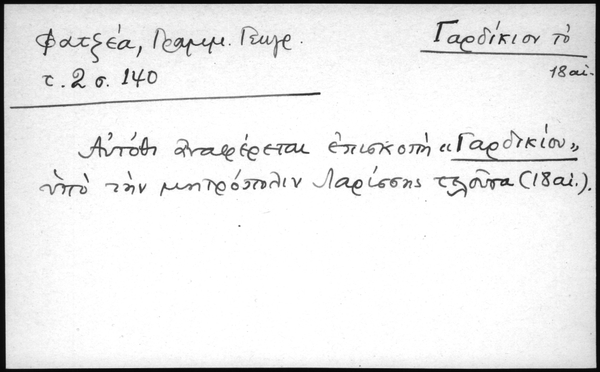 Φατζέα, Γραμμ. Γεωργ.
Γαρδίκιον τὸ
τ. 2 σ. 140
18 αἰ.
Αὐτόθι ἀναφέρεται ἐπισκοπὴ «Γαρδικίου»
ὑπὸ τὴν μητρόπολιν Λαρίσσης τελοῦσα (18 αἰ.).